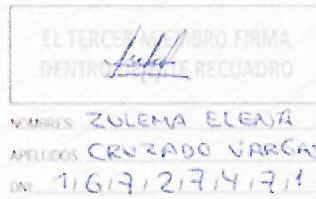 EL TERCER MIEMBRO FIRMA
DENTRO DE ESTE RECUADRO
NOMBRES ZULEMA ELENA
APELLIDOS CRUZADO VARGAS
DNI 1 6 7 2 7 4 7 1